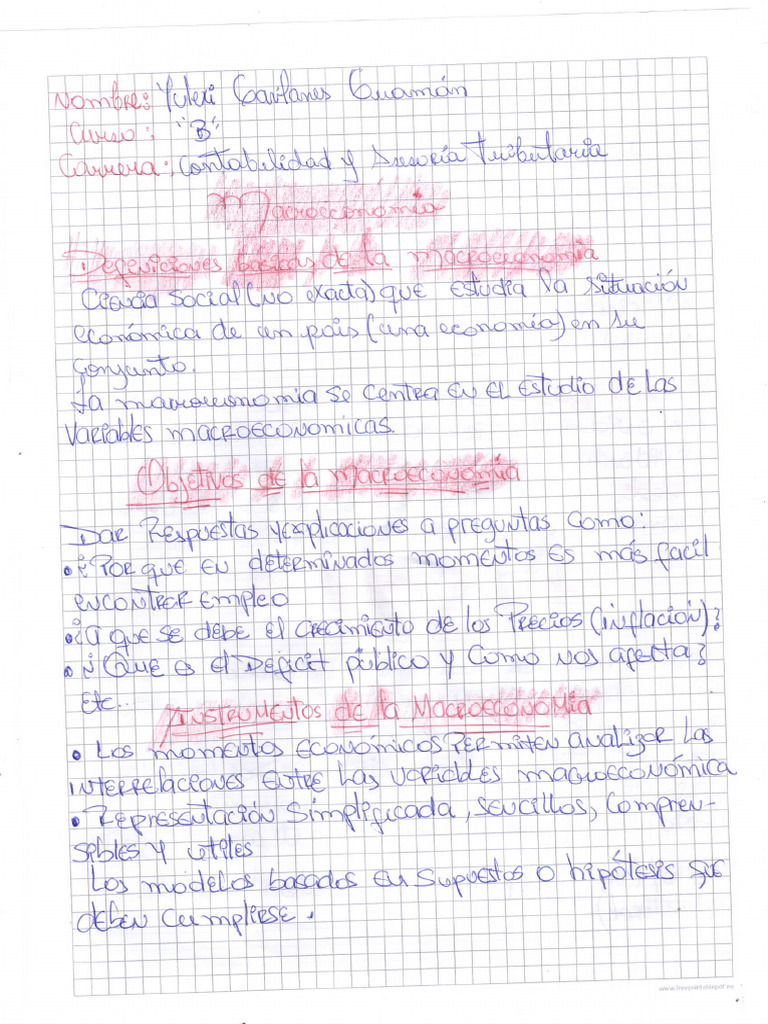 Nombre: Yulexi Gavilanes Guamán
Curso: "B"
Carrera: Contabilidad y Asesoría Tributaria
Macroeconomía
Definiciones basicas de la macroeconomia
Ciencia Social (no exacta) que estudia la situación
económica de un pais (una economía) en su
conjunto.
La macroeconomia se centra en el estudio de las
Variables macroeconomicas.
Objetivos de la macroeconomía
Dar Respuestas y explicaciones a preguntas como:
• ¿Por que en determinados momentos es más facil
encontrar empleo
• ¿a que se debe el crecimiento de los Precios (inflación)?
• ¿Que es el Deficit público y como nos afecta?
Etc..
Instrumentos de la Macroeconomía
• Los momentos económicos permiten analizar las
interrelaciones entre las variables macroeconómica
• Representación simplificada, sencillos, compren-
sibles y utiles
Los modelos basados en supuestos o hipótesis que
deben cumplirse.